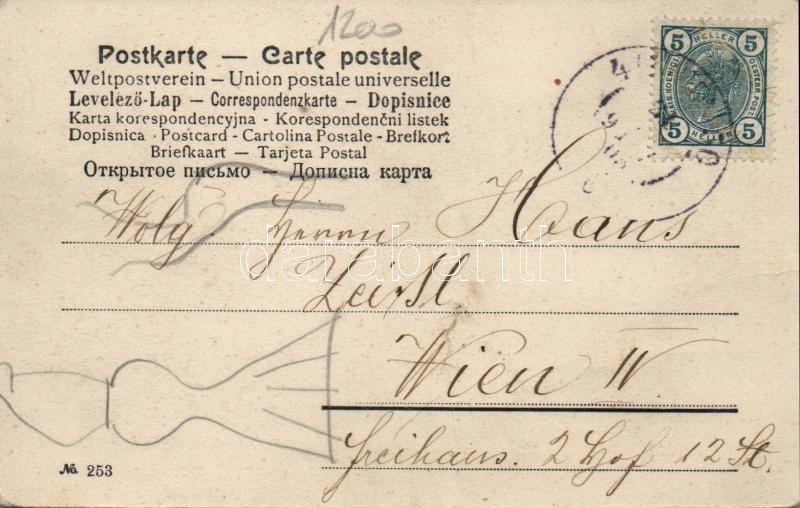 1200
Postkarte — Carte postale
Weltpostverein – Union postale universelle
Levelező-Lap – Correspondenzkarte – Dopisnice
Karta korespondencyjna - Korespondenčni listek
Dopisnica - Postcard - Cartolina Postale - Brefkort
Briefkaart — Tarjeta Postal
Открытое письмо — Дописна карта
5 HELLER 5
KAIS. KOENIGL. OESTERR. POST
5 HELLER 5
Wolg. Herrn Hans
darabanth
Wien IV
Freihaus. 2 Hof 12 St.
№ 253